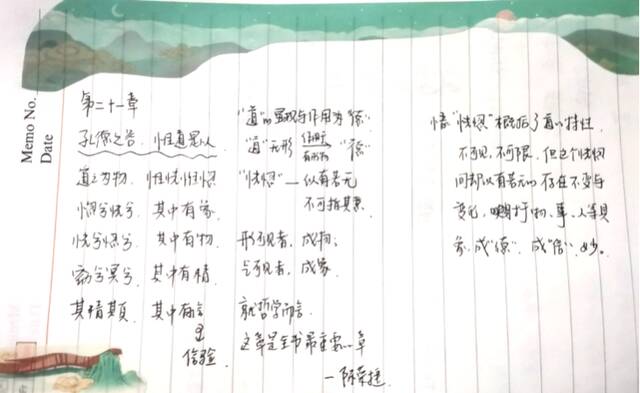 Memo No.
Date
第二十一章
孔德之容，惟道是从
道之为物，惟恍惟惚
惚兮恍兮，其中有象
恍兮惚兮，其中有物
窈兮冥兮，其中有精
其精甚真，其中有信
信验
"道"的显现与作用为"德"
"道"无形 作用于 有形为 "德"
"恍惚"—似有若无
不可指其象
形可见者，成物；
气可见者，成象
就哲学而言
这章是全书最重要一章
—陈荣捷
"恍惚"概括了道的特性
不可见，不可限，但这个恍惚
间却以有若无的存在不变与
变化，于物、事、人等具
象，成"德"，成"信"，妙。